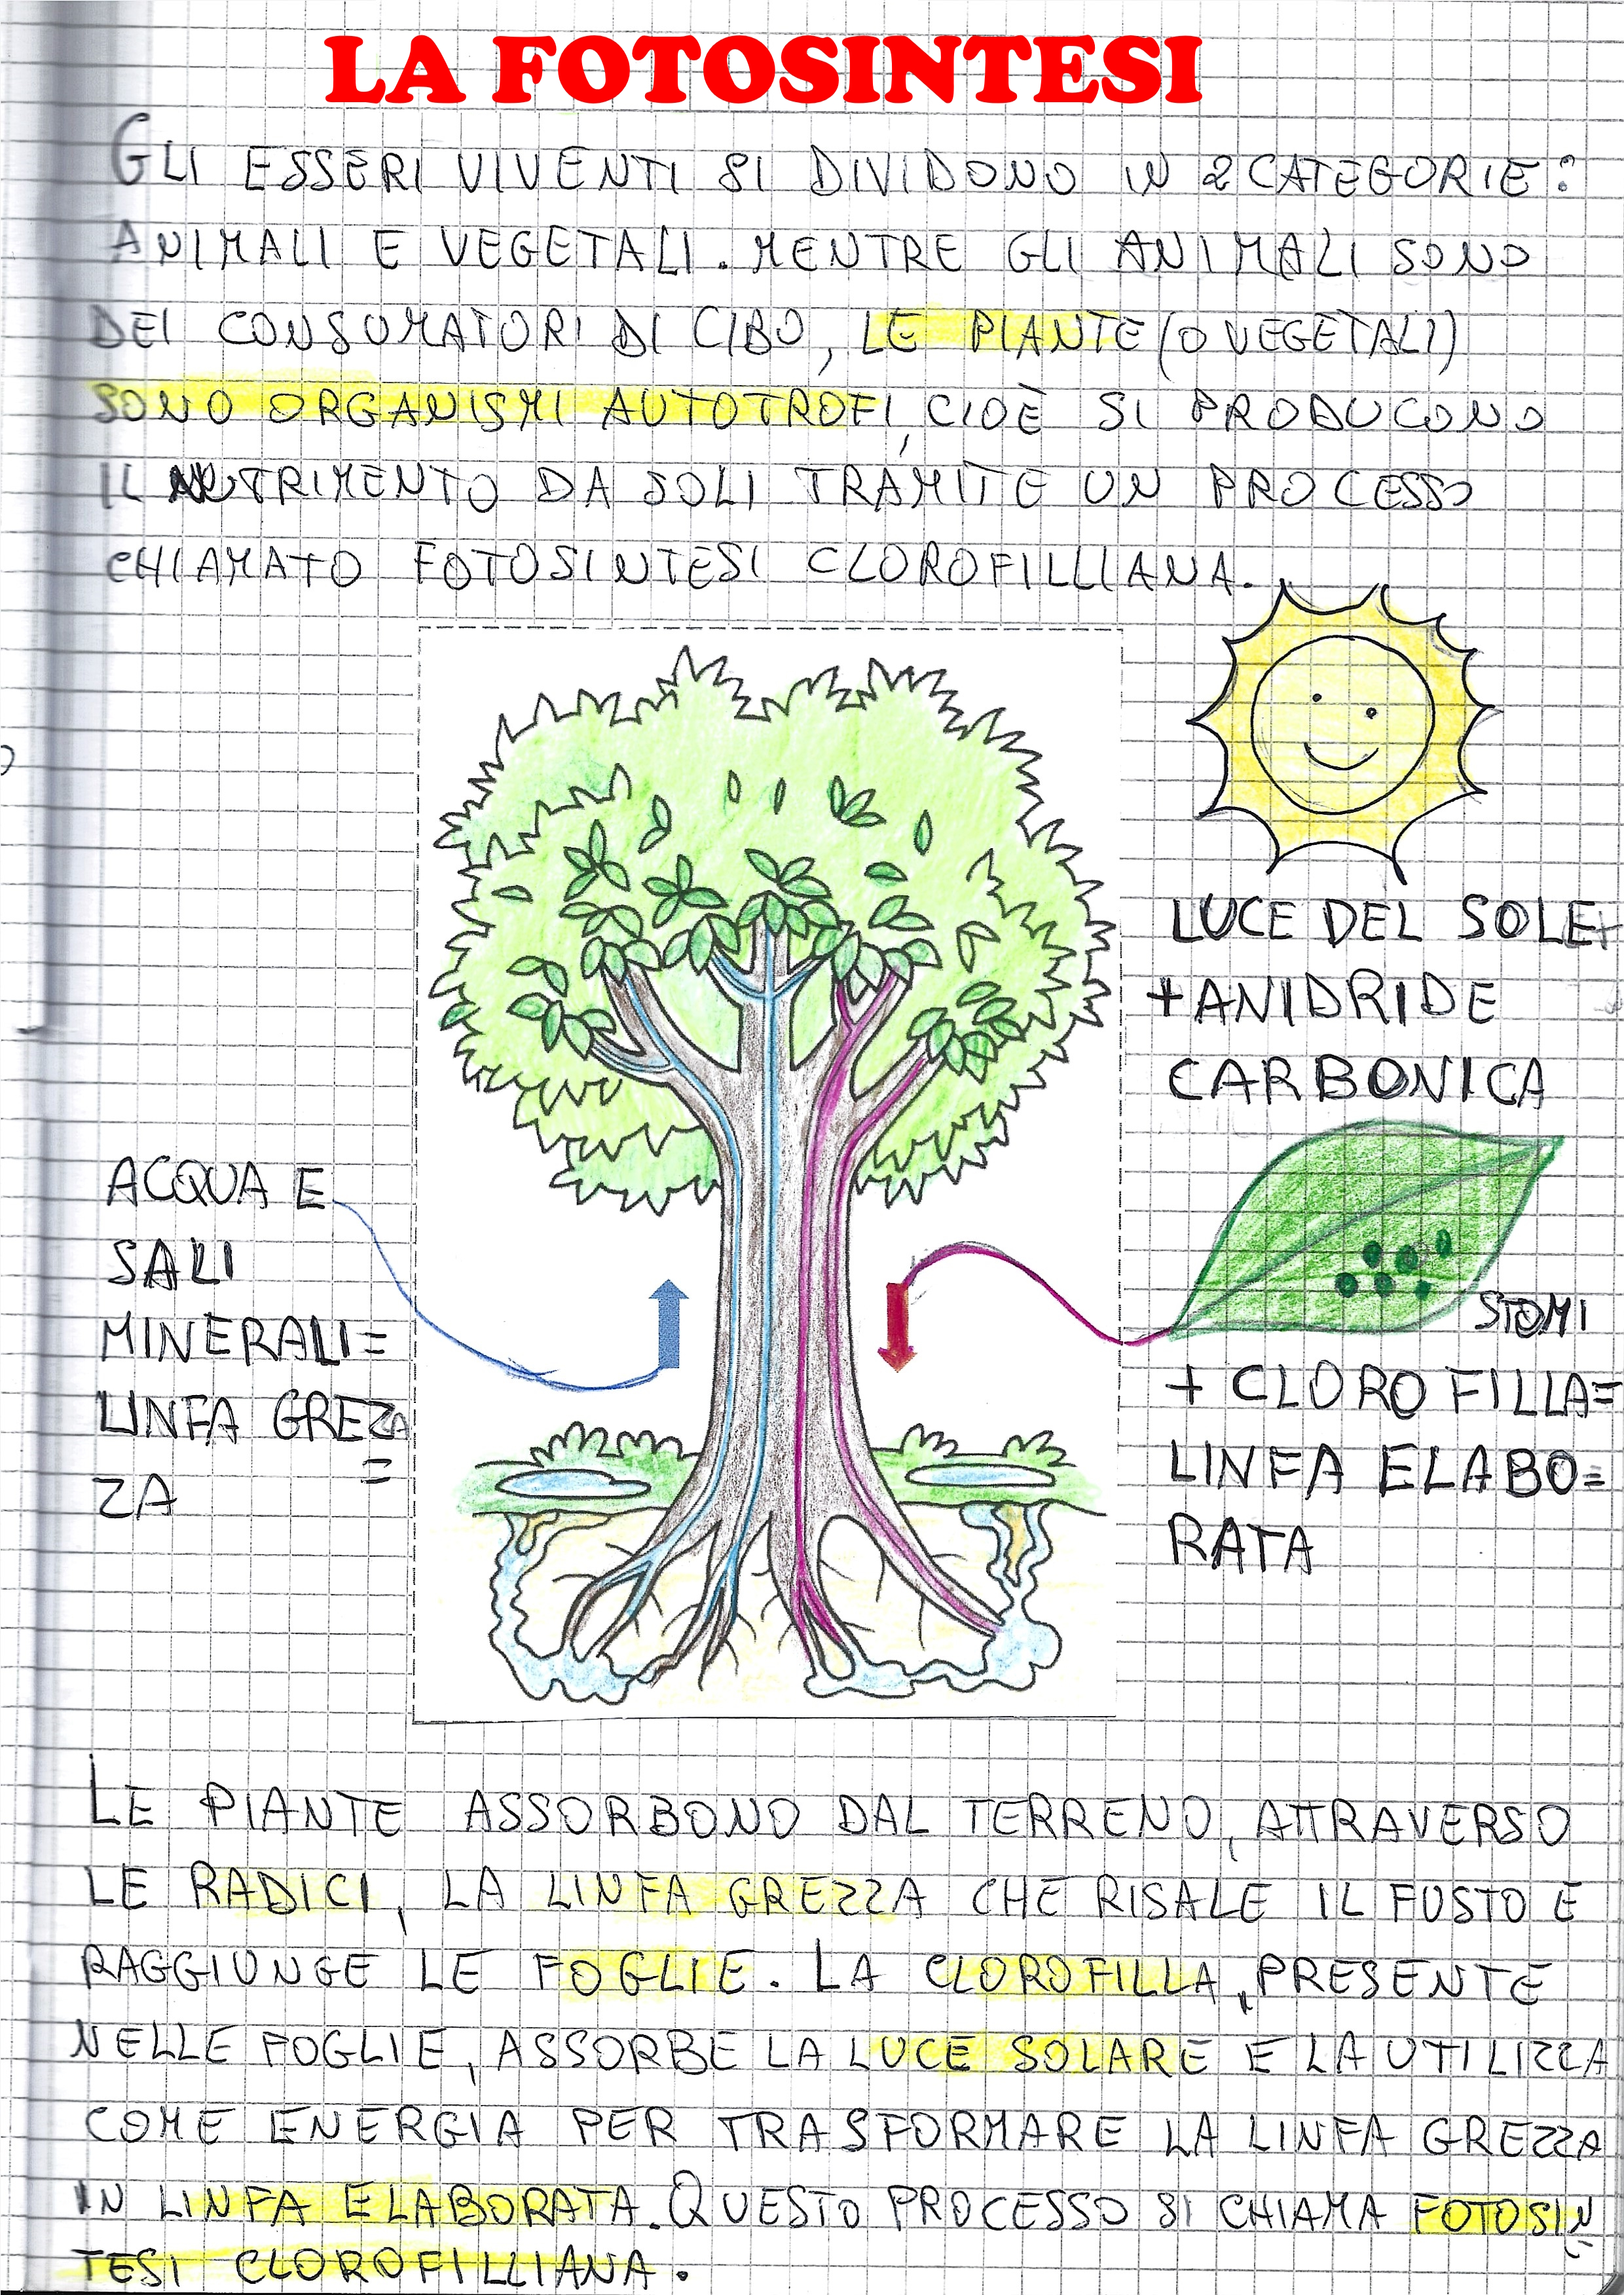 LA FOTOSINTESI
GLI ESSERI VIVENTI SI DIVIDONO IN 2 CATEGORIE:
ANIMALI E VEGETALI. MENTRE GLI ANIMALI SONO
DEI CONSUMATORI DI CIBO, LE PIANTE (O VEGETALI)
SONO ORGANISMI AUTOTROFI, CIOÈ SI PRODUCONO
IL NUTRIMENTO DA SOLI TRAMITE UN PROCESSO
CHIAMATO FOTOSINTESI CLOROFILLIANA.
LUCE DEL SOLE+
+ANIDRIDE
CARBONICA
ACQUA E
SALI
MINERALI=
LINFA GREZ
=
ZA
STOMI
+ CLOROFILLA=
LINFA ELABO=
RATA
LE PIANTE ASSORBONO DAL TERRENO, ATTRAVERSO
LE RADICI, LA LINFA GREZZA CHE RISALE IL FUSTO E
RAGGIUNGE LE FOGLIE. LA CLOROFILLA, PRESENTE
NELLE FOGLIE, ASSORBE LA LUCE SOLARE E LA UTILIZZA
COME ENERGIA PER TRASFORMARE LA LINFA GREZZA
IN LINFA ELABORATA. QUESTO PROCESSO SI CHIAMA FOTOSIN=
TESI CLOROFILLIANA.